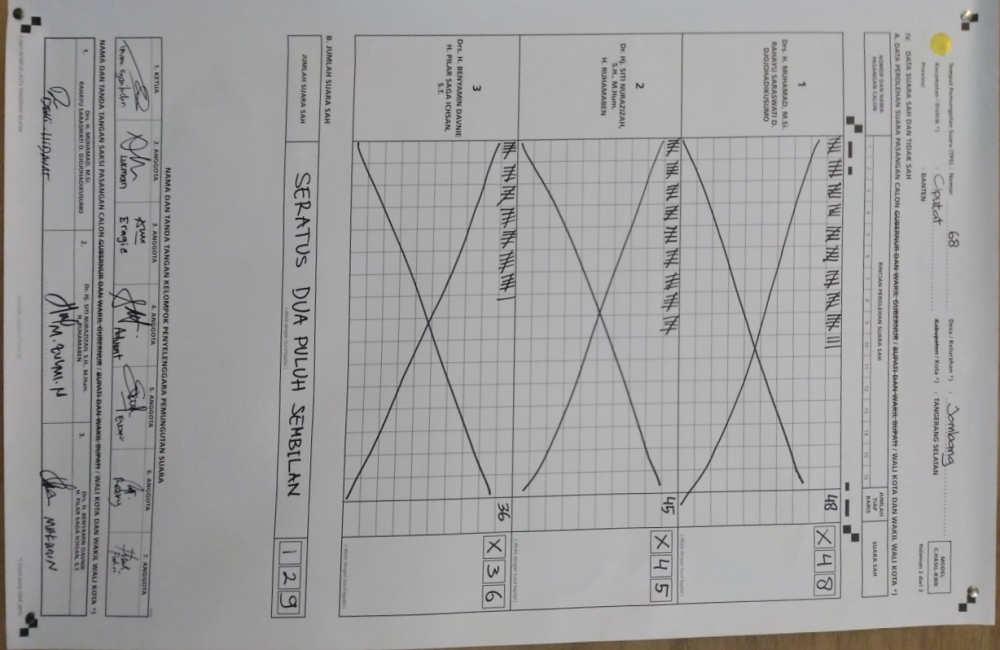 MODEL
C.HASIL-KWK
Halaman 2 dari 2
Tempat Pemungutan Suara (TPS) Nomor : 68
Desa / Kelurahan *) : Jombang
Kecamatan / Distrik *) : Ciputat
Kabupaten / Kota *) : TANGERANG SELATAN
Provinsi : BANTEN
IV. DATA SUARA SAH DAN TIDAK SAH
A. DATA PEROLEHAN SUARA PASANGAN CALON GUBERNUR DAN WAKIL GUBERNUR / BUPATI DAN WAKIL BUPATI / WALI KOTA DAN WAKIL WALI KOTA *)
NOMOR DAN NAMA PASANGAN CALON
RINCIAN PEROLEHAN SUARA SAH
JUMLAH TIAP BARIS
SUARA SAH
1
Drs. H. MUHAMAD, M.Si.
RAHAYU SARASWATI D.
DJOJOHADIKUSUMO
48
X 4 8
2
Dr. Hj. SITI NURAZIZAH,
S.H., M.Hum.
H. RUHAMABEN
45
X 4 5
3
Drs. H. BENYAMIN DAVNIE
H. PILAR SAGA ICHSAN,
S.T.
36
X 3 6
B. JUMLAH SUARA SAH
JUMLAH SUARA SAH
SERATUS DUA PULUH SEMBILAN
1 2 9
NAMA DAN TANDA TANGAN KELOMPOK PENYELENGGARA PEMUNGUTAN SUARA
1. KETUA
2. ANGGOTA
3. ANGGOTA
4. ANGGOTA
5. ANGGOTA
6. ANGGOTA
7. ANGGOTA
Lukman
Eragie
NAMA DAN TANDA TANGAN SAKSI PASANGAN CALON GUBERNUR DAN WAKIL GUBERNUR / BUPATI DAN WAKIL BUPATI / WALI KOTA DAN WAKIL WALI KOTA *)
1. Drs. H. MUHAMAD, M.Si.
RAHAYU SARASWATI D. DJOJOHADIKUSUMO
2. Dr. Hj. SITI NURAZIZAH, S.H., M.Hum.
H. RUHAMABEN
3. Drs. H. BENYAMIN DAVNIE
H. PILAR SAGA ICHSAN, S.T.
HIDAYAT